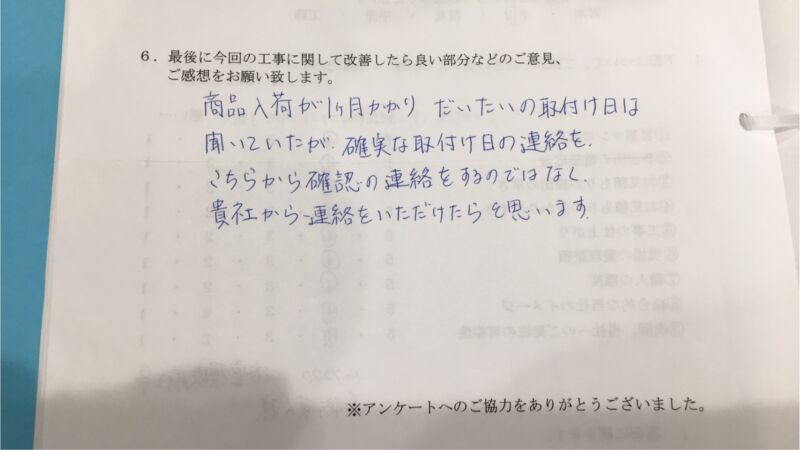 6．最後に今回の工事に関して改善したら良い部分などのご意見、
ご感想をお願い致します。
商品入荷が1ヶ月かかり だいたいの取付け日は
聞いていたが、確実な取付け日の連絡を、
こちらから確認の連絡をするのではなく、
貴社から連絡をいただけたらと思います
※アンケートへのご協力をありがとうございました。